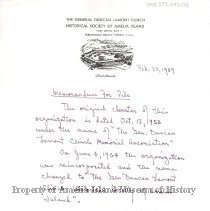 THE GENERAL DUNCAN LAMONT CLINCH
HISTORICAL SOCIETY OF AMELIA ISLAND
Feb. 22, 1989
Memorandum For File
The original charter of this
organization is dated Oct. 17, 1953
under the name of "The Gen. Duncan
Lamont Clinch Memorial Association"
On June 4, 1964 the organization
was reincorporated and the name
changed to "The Gen Duncan Lamont
Amelia Island Museum of History
Island".